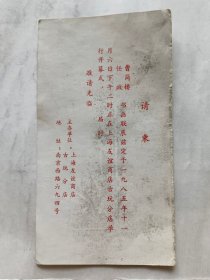 请柬
曹简楼
任政 书画联展兹定于一九八五年十一
月六日下午二时正在上海友谊商店古玩分店举
行开幕式，届时
敬请光临
主办单位：上海友谊商店
古玩分店
地址：南京西路六九四号